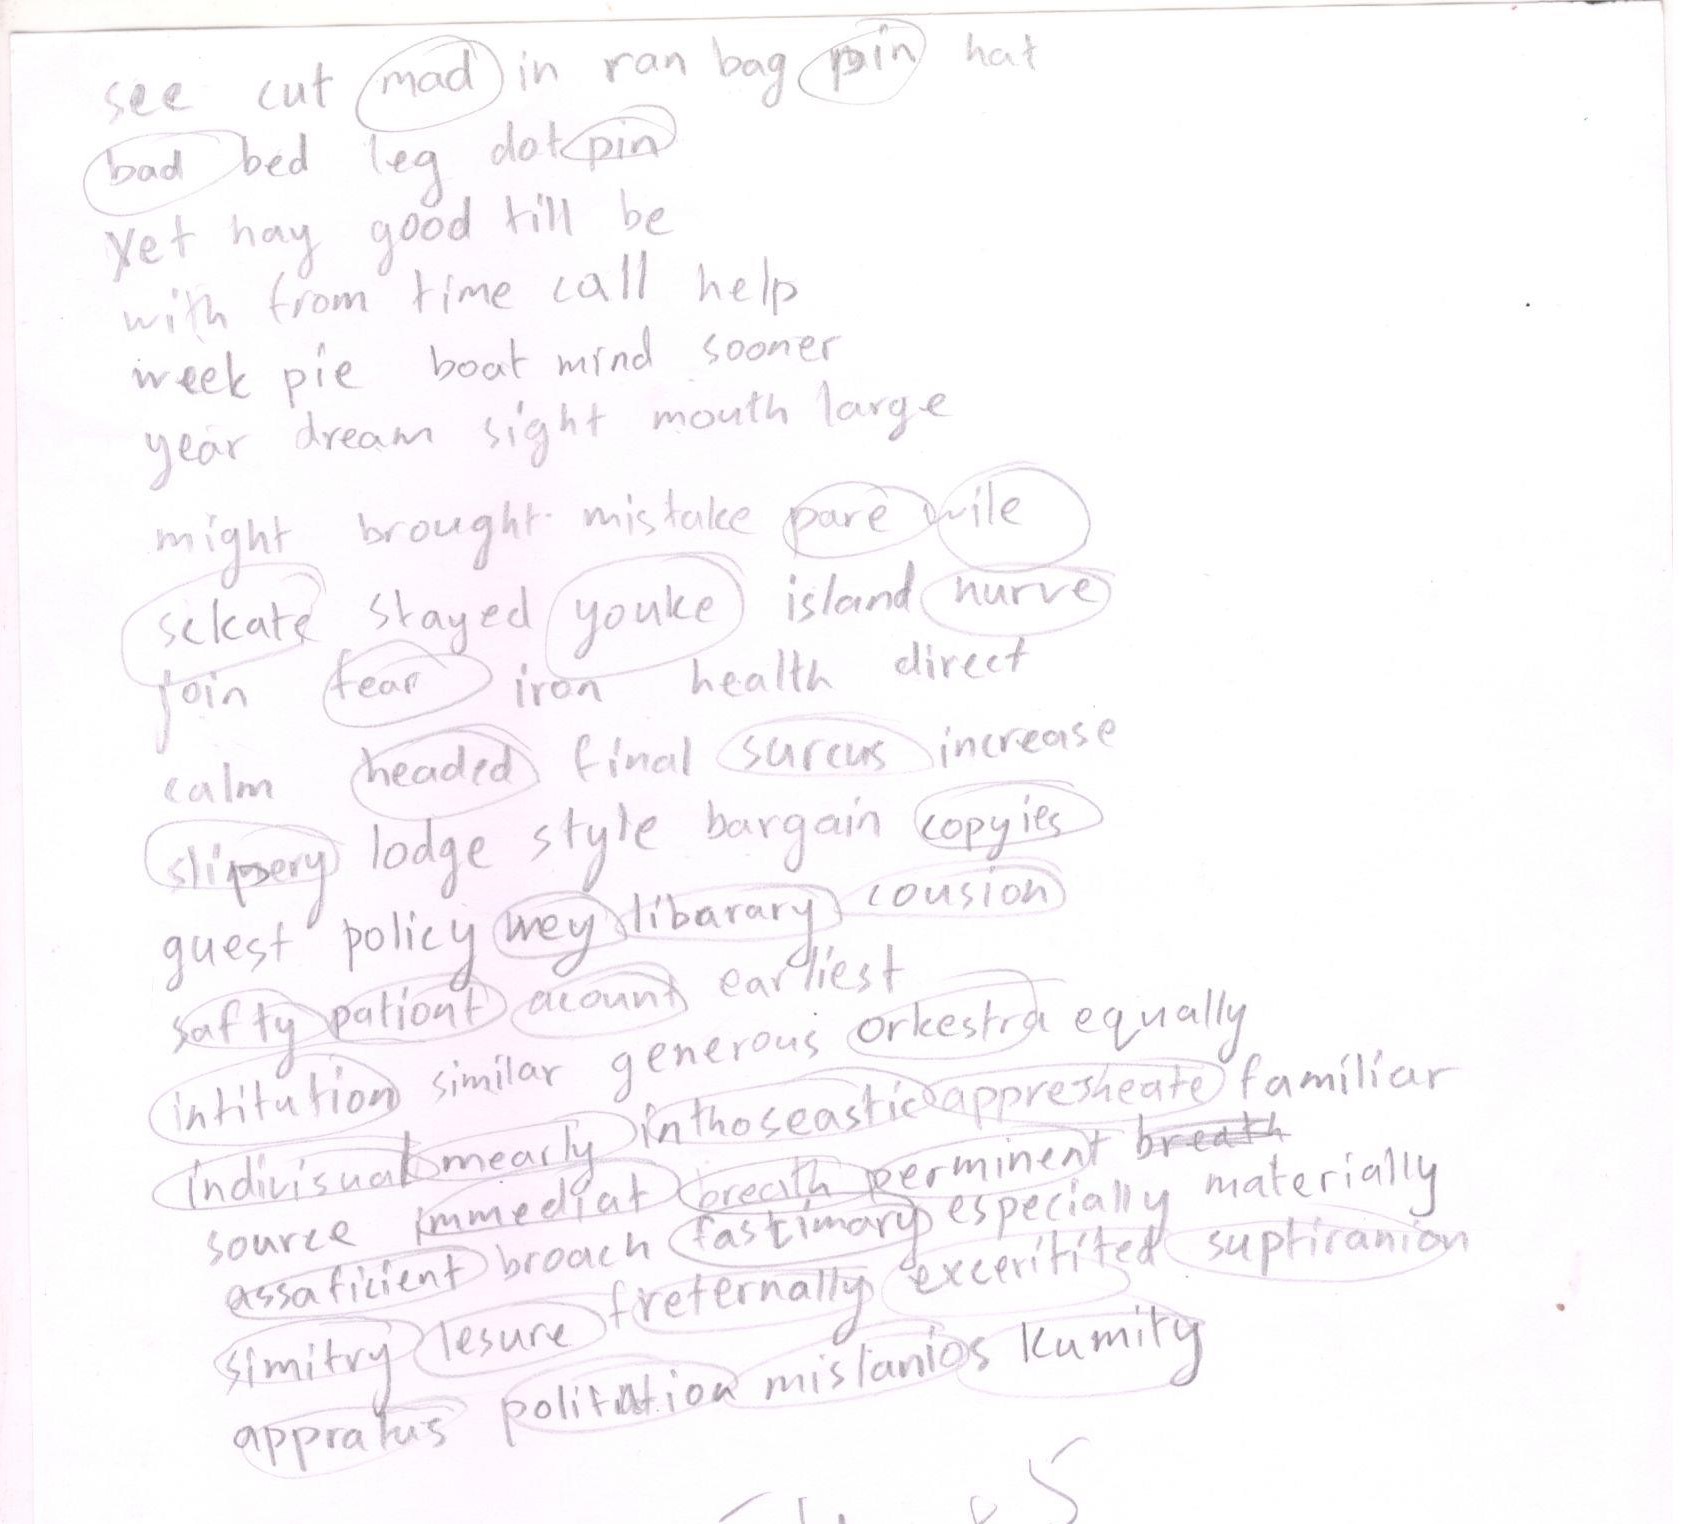 see cut mad in ran bag pin hat
bad bed leg dot pin
yet hay good till be
with from time call help
week pie boat mind sooner
year dream sight mouth large
might brought mistake pare wile
sckate stayed youke island nurve
join fear iron health direct
calm headed final surcus increase
slippery lodge style bargain copyies
guest policy wey libarary cousion
safty pationt acount earliest
intitution similar generous orkestra equally
indivisual mearly inthoseastic appresheate familiar
source immediat breath perminent breath
assaficient broach fastimary especially materially
simitry lesure freternally exceritited suptiranion
appratus politution mislanios kumity